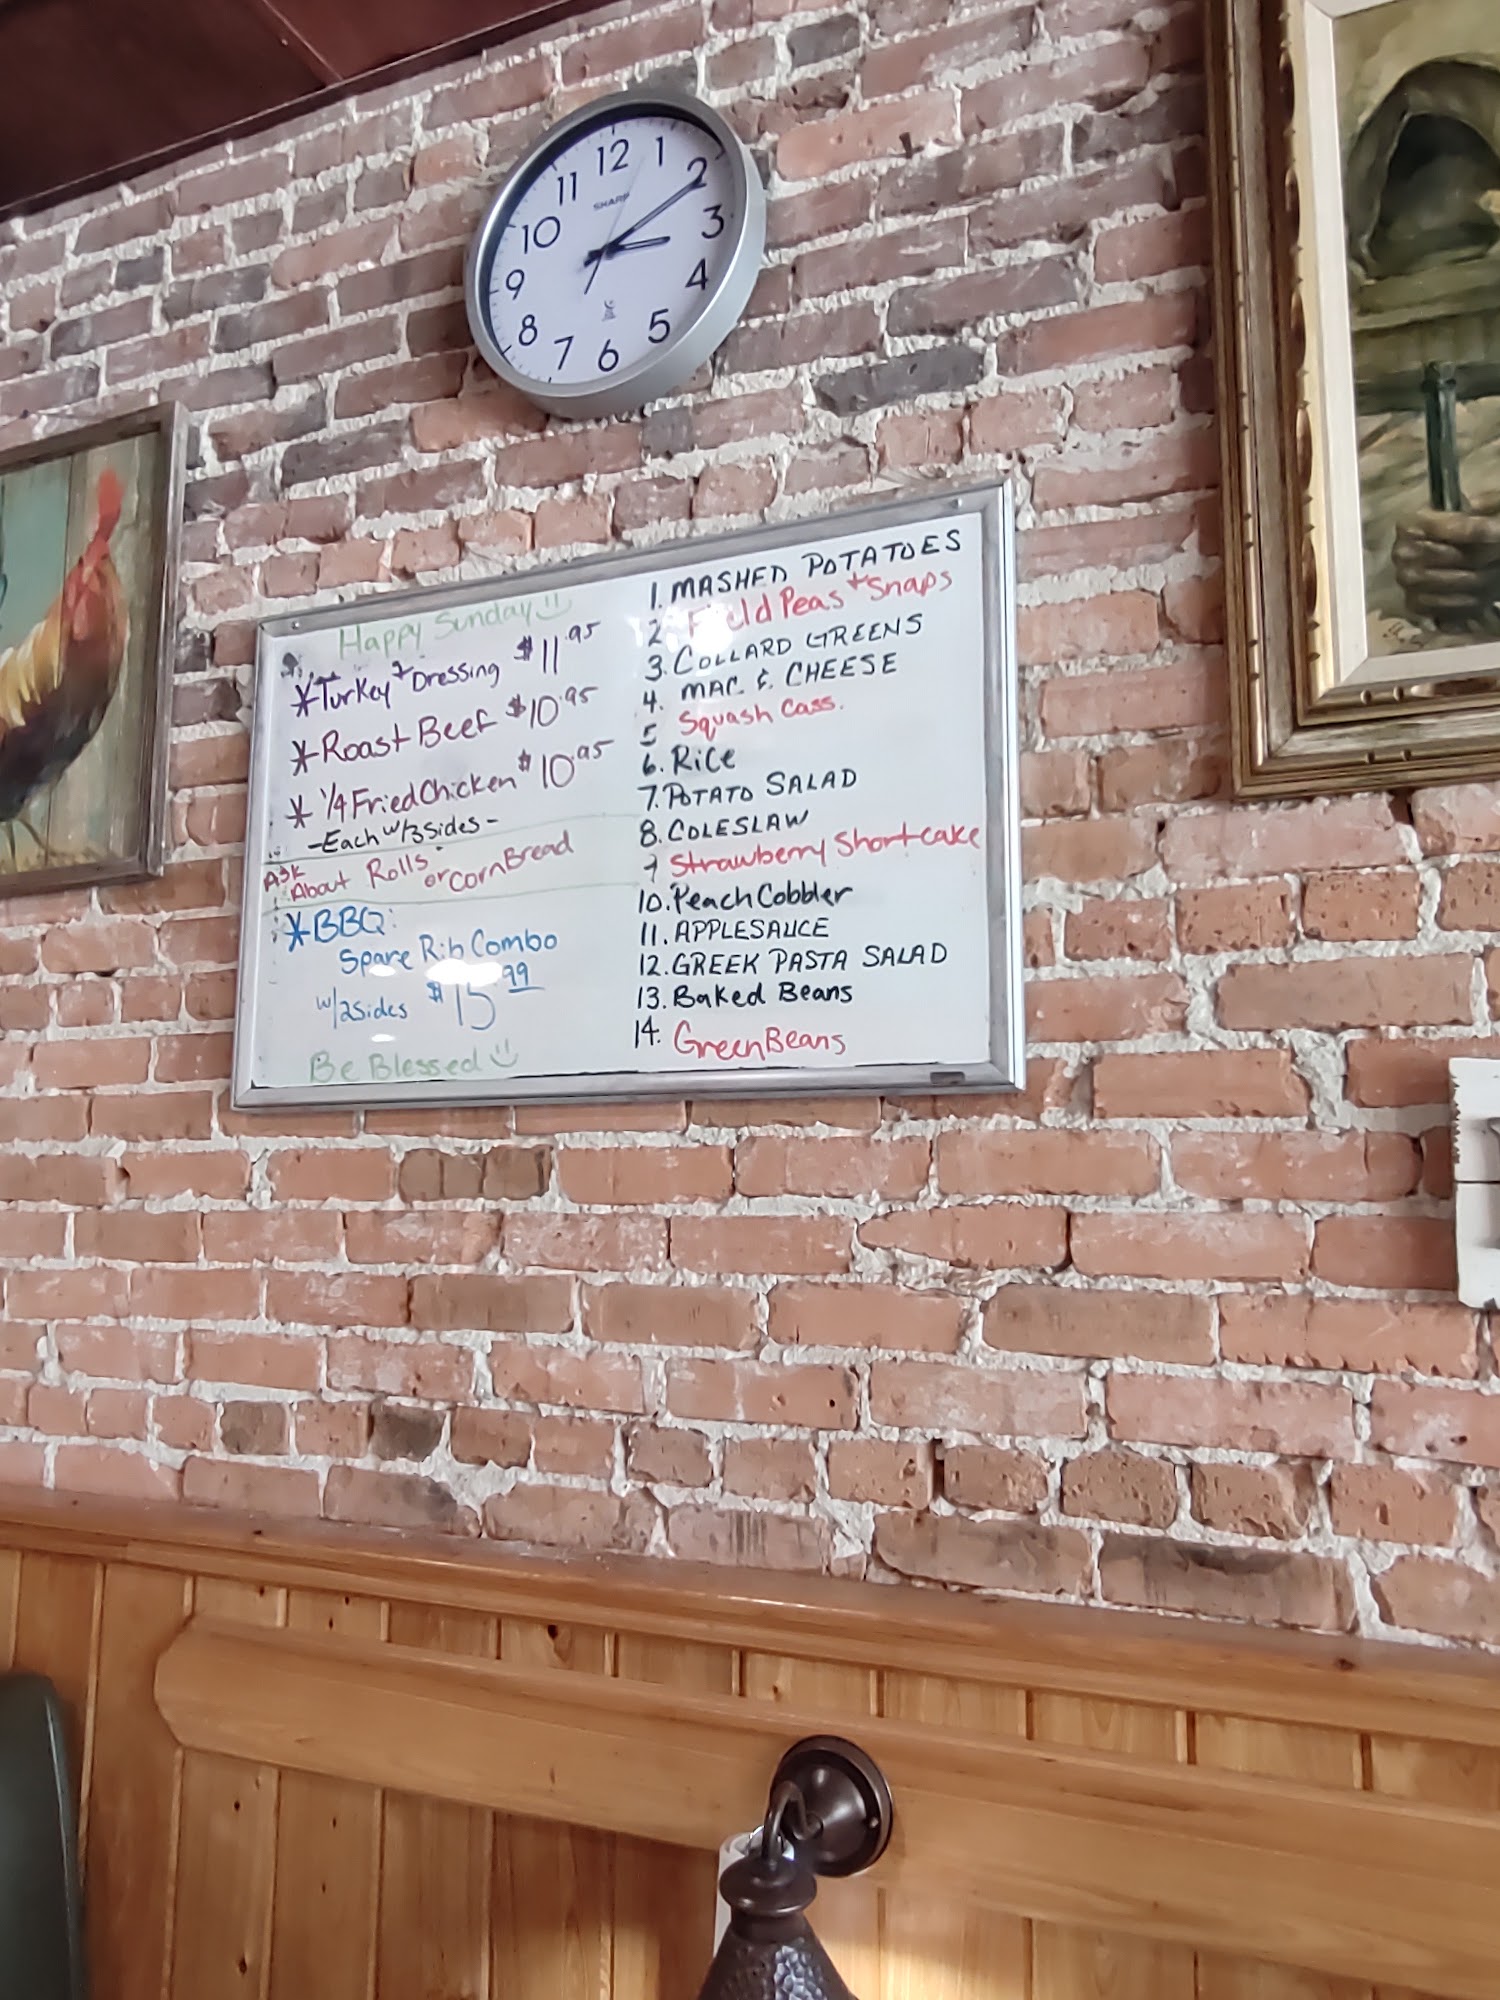 12
1
2
3
4
5
6
7
8
9
10
11
SHARP
Happy Sunday
*Turkey + Dressing $11.95
*Roast Beef $10.95
* 1/4 Fried Chicken $10.95
-Each w/3 sides-
Ask About Rolls or Corn Bread
*BBQ:
Spare Rib Combo
w/2 sides $15.99
Be Blessed
1. MASHED POTATOES
2. Field Peas + Snaps
3. COLLARD GREENS
4. MAC. & CHEESE
5 Squash Cass.
6. Rice
7. POTATO SALAD
8. COLESLAW
9 Strawberry Shortcake
10. Peach Cobbler
11. APPLESAUCE
12. GREEK PASTA SALAD
13. Baked Beans
14. Green Beans